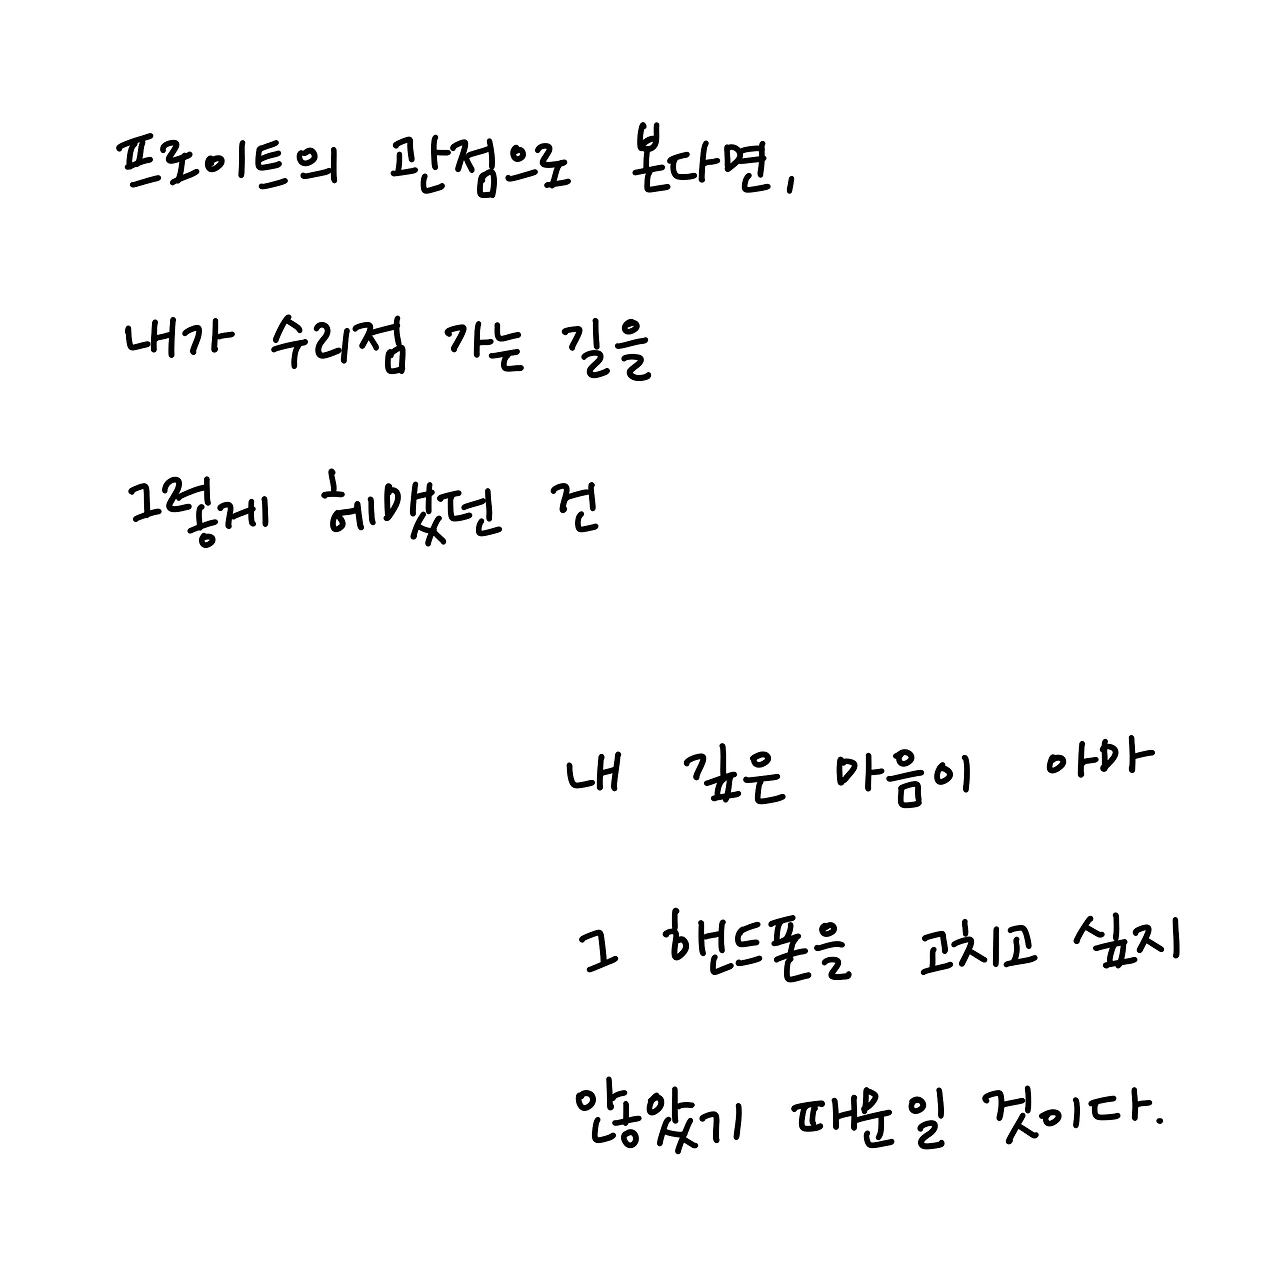 프로이트의 관점으로 본다면,
내가 수리점 가는 길을
그렇게 헤맸던 건
내 깊은 마음이 아마
그 핸드폰을 고치고 싶지
않았기 때문일 것이다.